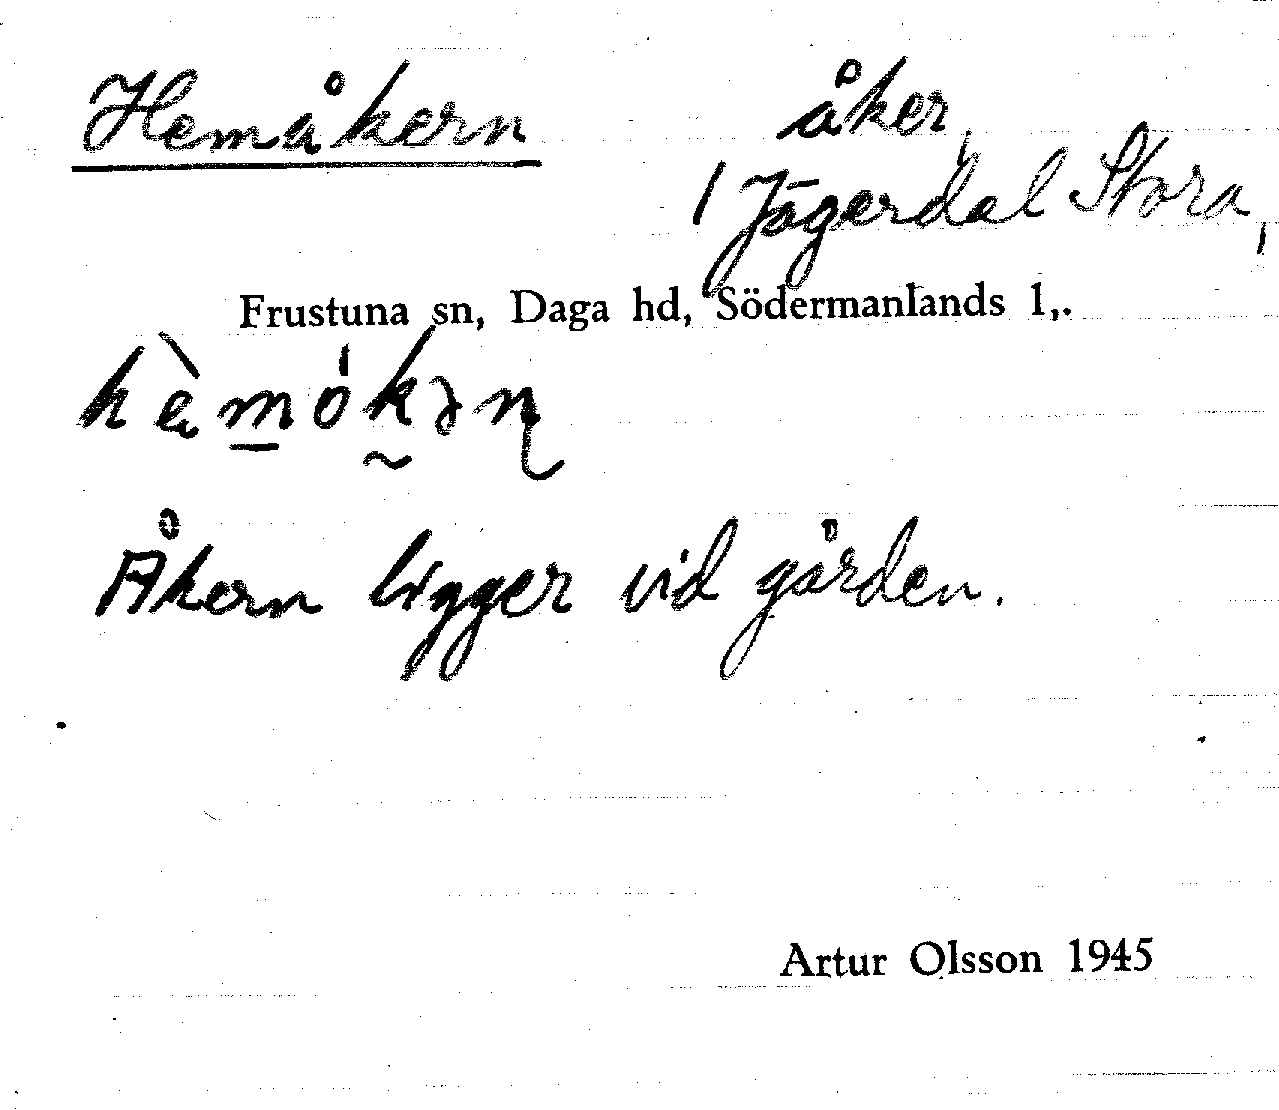 Hemåkern åker,
1 Jägerdal Stora,
Frustuna sn, Daga hd, Södermanlands l,.
Åkern ligger vid gården.
Artur Olsson 1945